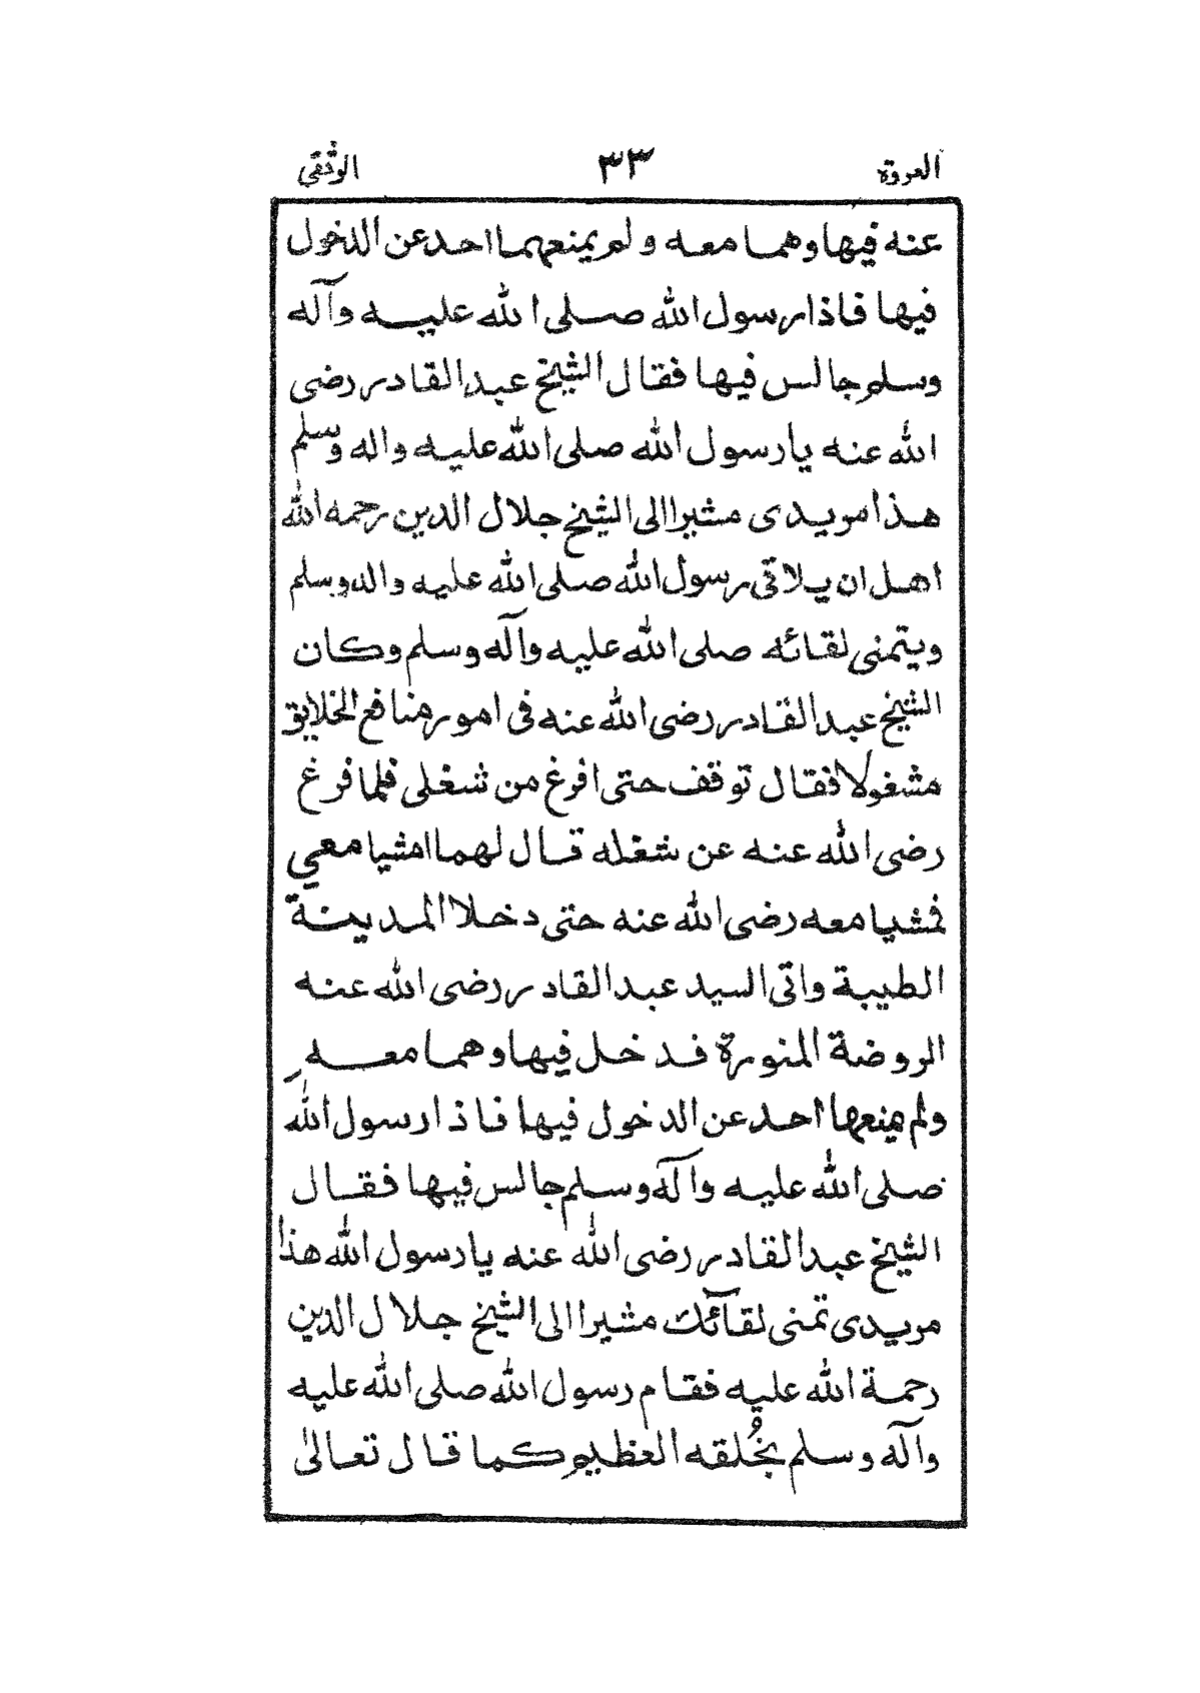 العروة ٣٣ الوثقي
عنه فيها وهما معه ولم يمنعهما احد عن الدخول
فيها فاذا رسول الله صلى الله عليه وآله
وسلم جالس فيها فقال الشيخ عبد القادر رضى
الله عنه يا رسول الله صلى الله عليه واله وسلم
هذا مريدى مشيرا الى الشيخ جلال الدين رحمه الله
اهل ان يلاقى رسول الله صلى الله عليه واله وسلم
ويتمنى لقائه صلى الله عليه وآله وسلم وكان
الشيخ عبد القادر رضى الله عنه فى امور منافع الخلايق
مشغولا فقال توقف حتى افرغ من شغلى فلما فرغ
رضى الله عنه عن شغله قال لهما امشيا معي
فمشيا معه رضى الله عنه حتى دخلا المدينة
الطيبة واتى السيد عبد القادر رضى الله عنه
الروضة المنورة فدخل فيها وهما معه
ولم يمنعها احد عن الدخول فيها فاذا رسول الله
صلى الله عليه وآله وسلم جالس فيها فقال
الشيخ عبد القادر رضى الله عنه يا رسول الله هذا
مريدى تمنى لقآئك مشيرا الى الشيخ جلال الدين
رحمة الله عليه فقام رسول الله صلى الله عليه
وآله وسلم بخُلقه العظيم كما قال تعالىٰ